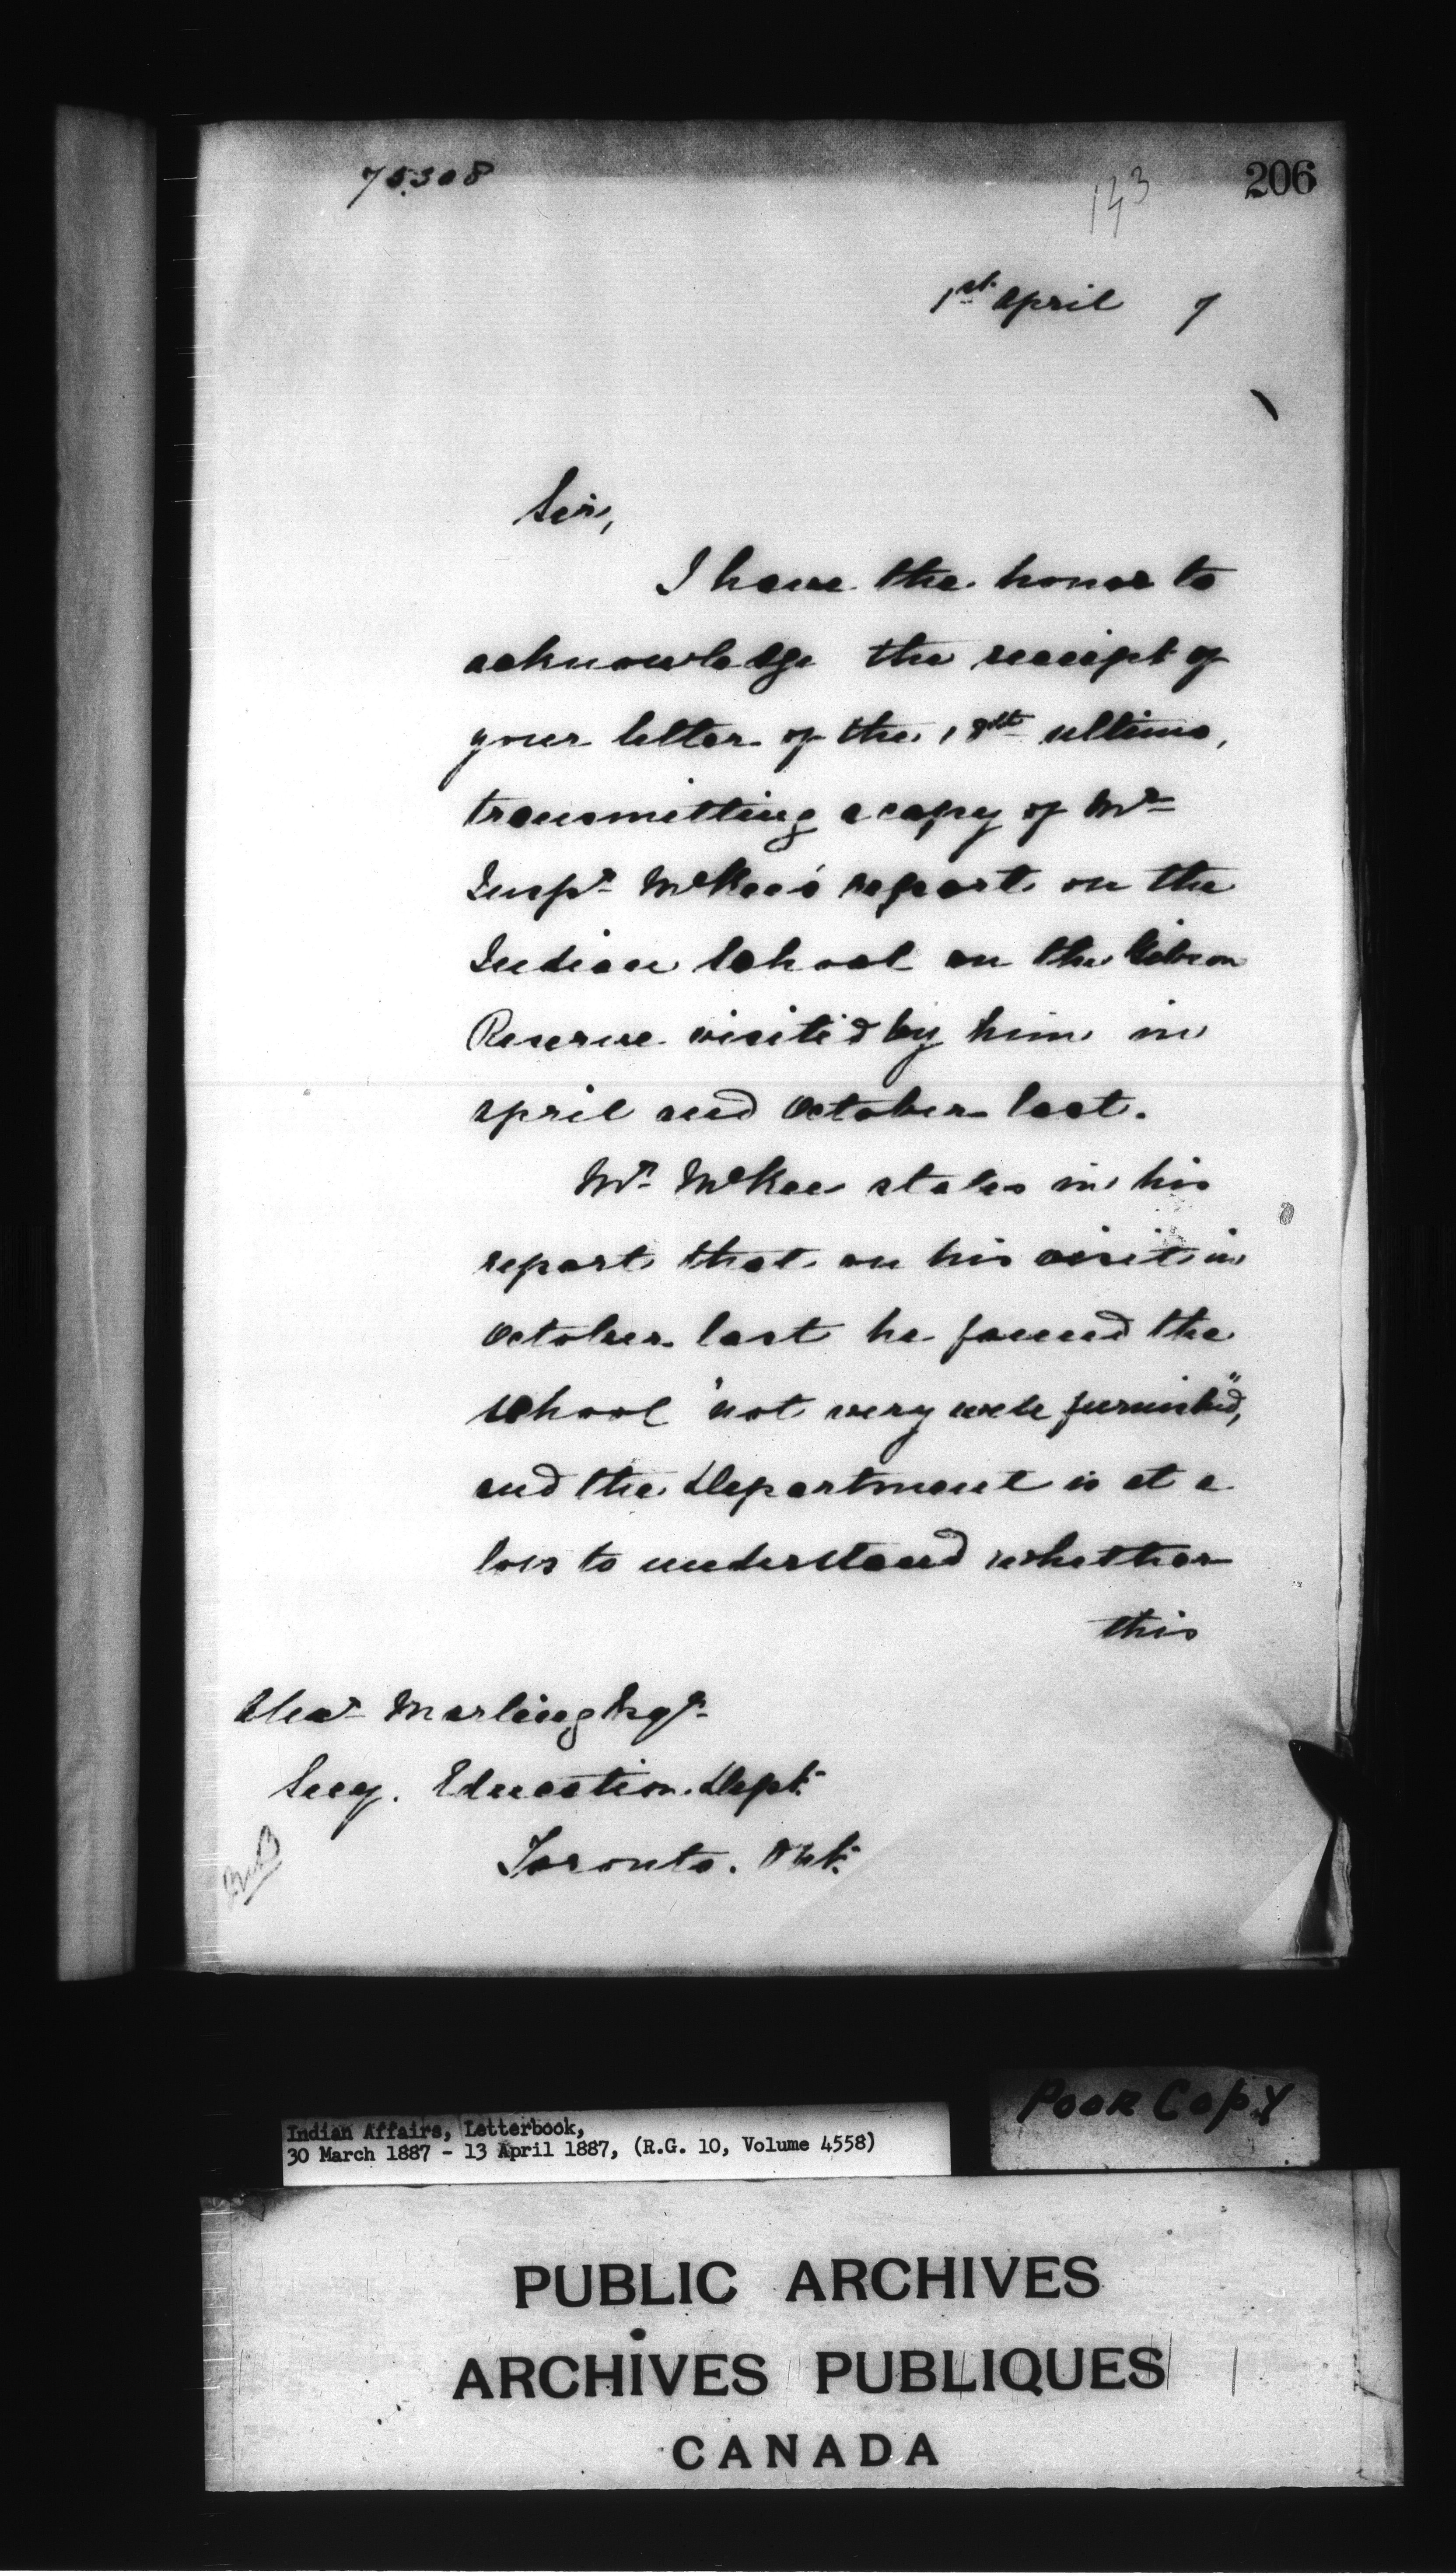 75308
206
1st April 7
Sir,
I have the honor to
acknowledge the receipt of
your letter of the 18th ultimo,
transmitting a copy of Mr
Inspr McKee's report on the
Indian School on the
Reserve visited by him in
April and October last.
Mr McKee states in his
report that on his visit in
October last he found the
school "not very well furnished",
and the Department is at a
loss to understand whether
this
Alexr Marling Esqr
Secy. Education Dept.
Toronto. Ont.
Poor Copy
Indian Affairs, Letterbook,
30 March 1887 - 13 April 1887, (R.G. 10, Volume 4558)
PUBLIC ARCHIVES
ARCHIVES PUBLIQUES
CANADA